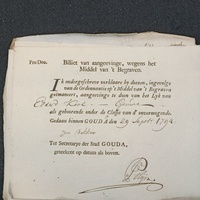 Pro Deo. Billiet van aangeevinge, wegens het
Middel van 't Begraven.
Ik ondergeschreve verklaare by deezen, ingevolge
van de Ordonnantie op 't Middel van 't Begraven
geimaneert, aangeevinge te doen van het Lyk van
als gehoorende onder de Classe van d' onvermogende.
Gedaan binnen GOUDA den 29 Septr 1794
Ter Secretarye der stad GOUDA,
geteekent op datum als boven.